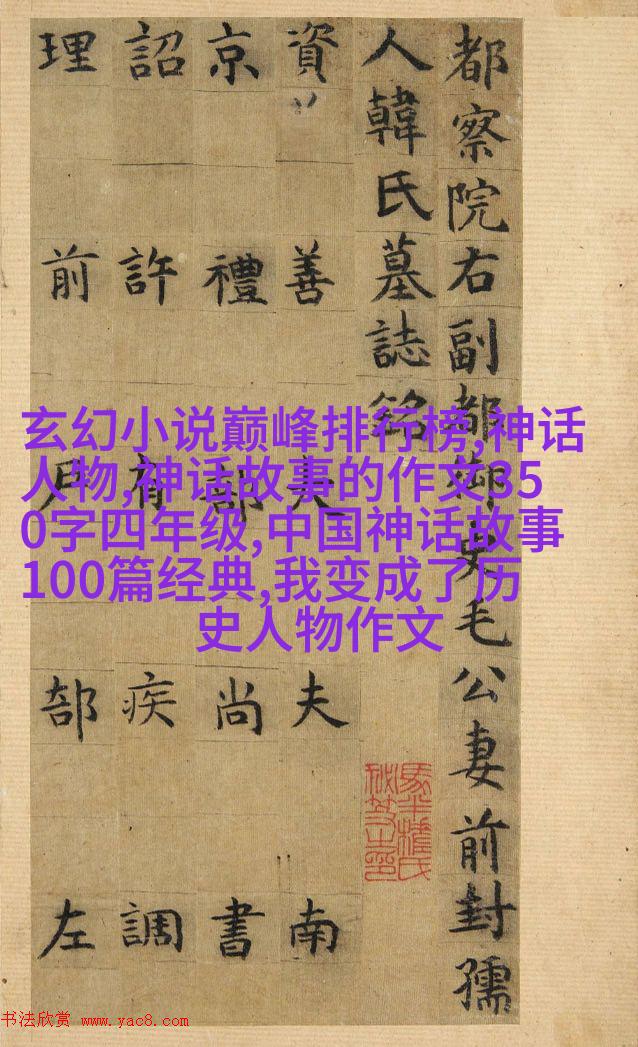 都察院右副都御史毛公妻前封孺
人韓氏墓誌銘
資善大夫南
京禮部尚書
詔許有疾調
理前戶部左
玄幻小说巅峰排行榜,神话
人物,神话故事的作文35
0字四年级,中国神话故事
100篇经典,我变成了历
史人物作文
书法欣赏 www.yac8.com